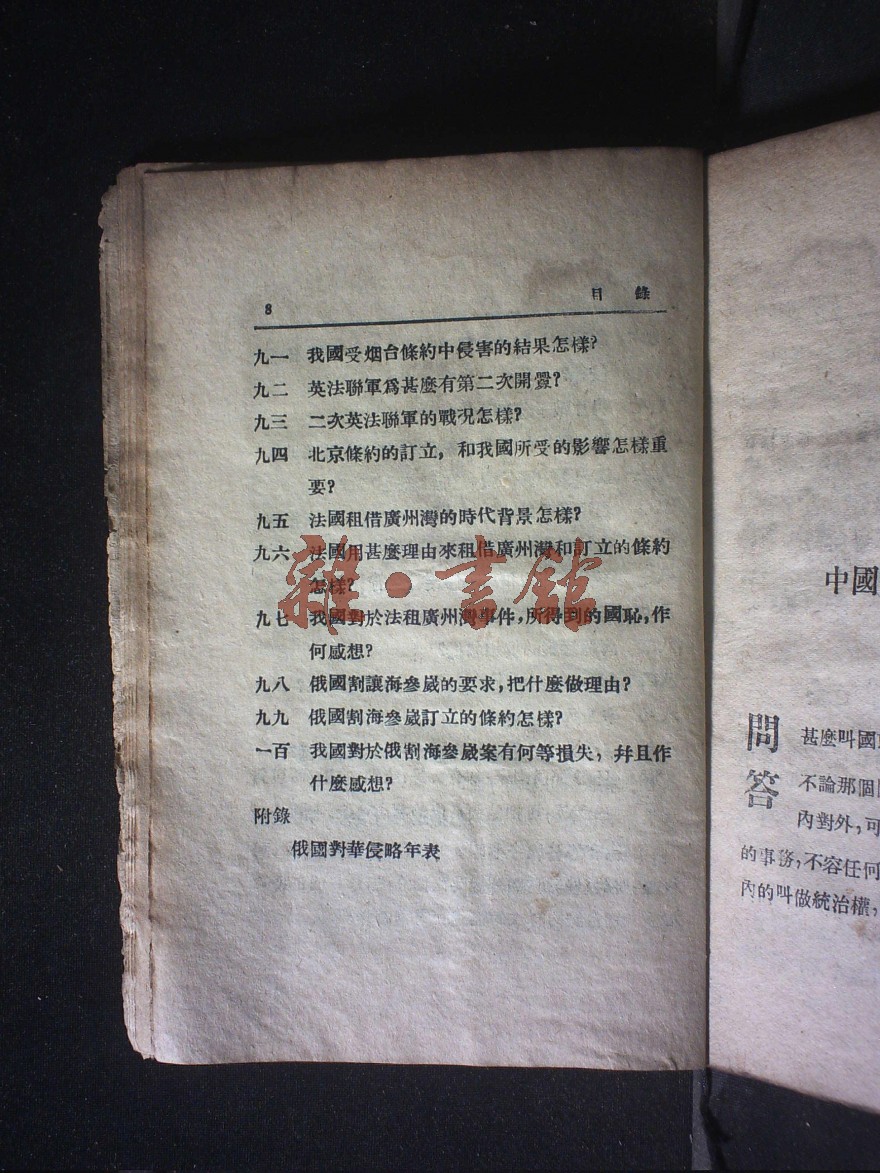 8 目錄
九一 我國受烟台條約中侵害的結果怎樣?
九二 英法聯軍爲甚麼有第二次開釁?
九三 二次英法聯軍的戰况怎樣?
九四 北京條約的訂立，和我國所受的影響怎樣重
要?
九五 法國租借廣州灣的時代背景怎樣?
九六 法國用甚麼理由來租借廣州灣和訂立的條約
怎樣?
九七 我國對於法租廣州灣事件，所得到的國恥，作
何感想?
九八 俄國割讓海參崴的要求，把什麼做理由?
九九 俄國割海參崴訂立的條約怎樣?
一百 我國對於俄割海參崴案有何等損失，幷且作
什麼感想?
附錄
俄國對華侵略年表
雜·書館
中國
問 甚麼叫國
答 不論那個
內對外，可
的事務，不容任何
內的叫做統治權，